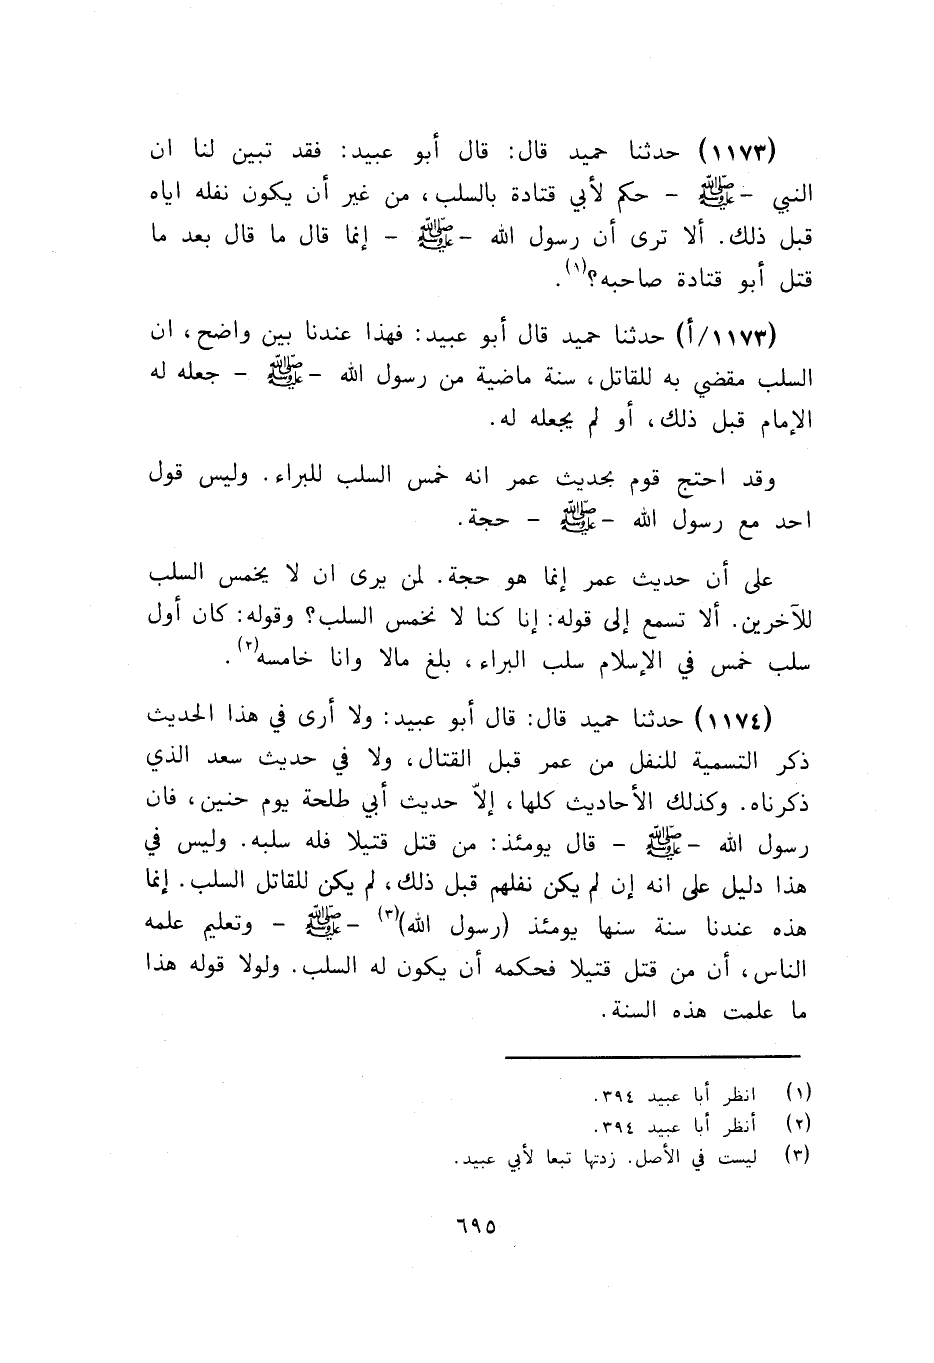 (١١٧٣) حدثنا حميد قال: قال أبو عبيد: فقد تبين لنا ان
النبي - ﷺ - حكم لأبي قتادة بالسلب، من غير أن يكون نفله اياه
قبل ذلك. ألا ترى أن رسول الله - ﷺ - إنما قال ما قال بعد ما
قتل أبو قتادة صاحبه؟(١).
(١١٧٣/أ) حدثنا حميد قال أبو عبيد: فهذا عندنا بين واضح، ان
السلب مقضي به للقاتل، سنة ماضية من رسول الله - ﷺ - جعله له
الإمام قبل ذلك، أو لم يجعله له.
وقد احتج قوم بحديث عمر انه خمس السلب للبراء. وليس قول
احد مع رسول الله - ﷺ - حجة.
على أن حديث عمر إنما هو حجة. لمن يرى ان لا يخمس السلب
للآخرين. ألا تسمع إلى قوله: إنا كنا لا نخمس السلب؟ وقوله: كان أول
سلب خمس في الإسلام سلب البراء، بلغ مالا وانا خامسه(٢).
(١١٧٤) حدثنا حميد قال: قال أبو عبيد: ولا أرى في هذا الحديث
ذكر التسمية للنفل من عمر قبل القتال، ولا في حديث سعد الذي
ذكرناه. وكذلك الأحاديث كلها، إلاّ حديث أبي طلحة يوم حنين، فان
رسول الله - ﷺ - قال يومئذ: من قتل قتيلا فله سلبه. وليس في
هذا دليل على انه إن لم يكن نفلهم قبل ذلك، لم يكن للقاتل السلب. إنما
هذه عندنا سنة سنها يومئذ (رسول الله)(٣) - ﷺ - وتعليم علمه
الناس، أن من قتل قتيلا فحكمه أن يكون له السلب. ولولا قوله هذا
ما علمت هذه السنة.
(١) انظر أبا عبيد ٣٩٤.
(٢) أنظر أبا عبيد ٣٩٤.
(٣) ليست في الأصل. زدتها تبعا لأبي عبيد.
٦٩٥